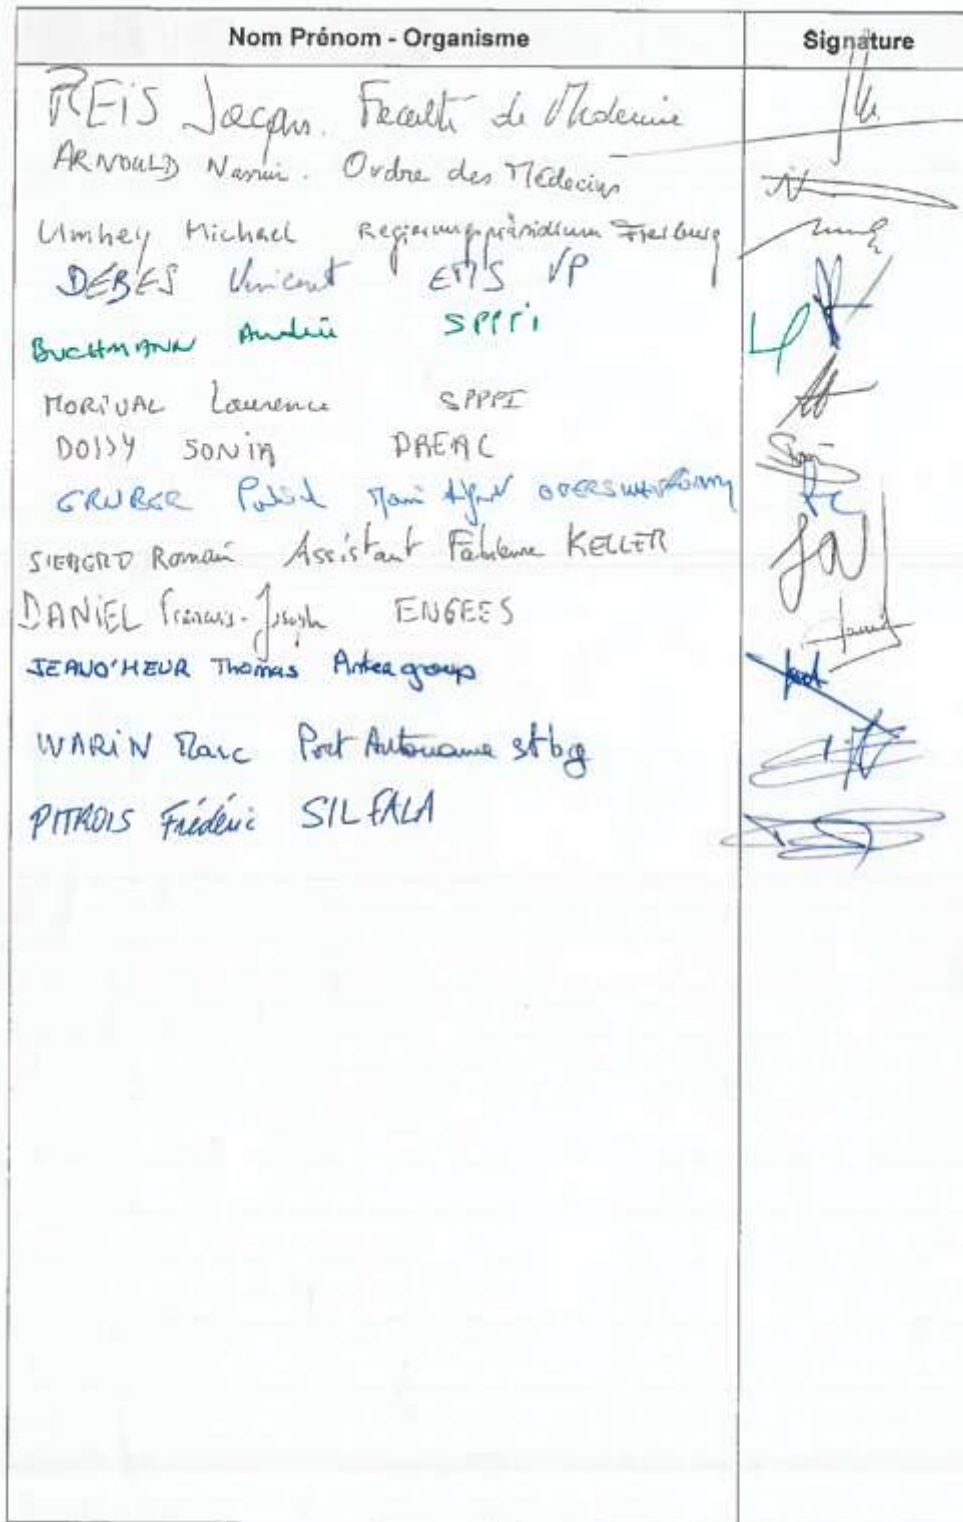 Nom Prénom - Organisme Signature
REiS Jacques. Faculté de Médecine
ARNOULD Ordre des Médecins
Umhey Michael Regierungspräsidium Freiburg
DEBES Vincent EMS VP
BUCHMANN SPPPI
MORIVAL Laurence SPPPI
SONIA DREAC
GRUBER
Romain Assistant Fabienne KELLER
DANIEL François-Joseph ENGEES
JEAND'HEUR Thomas Antea group
WARIN Marc Port Autonome stbg
PITROIS Frédéric SIL FALA